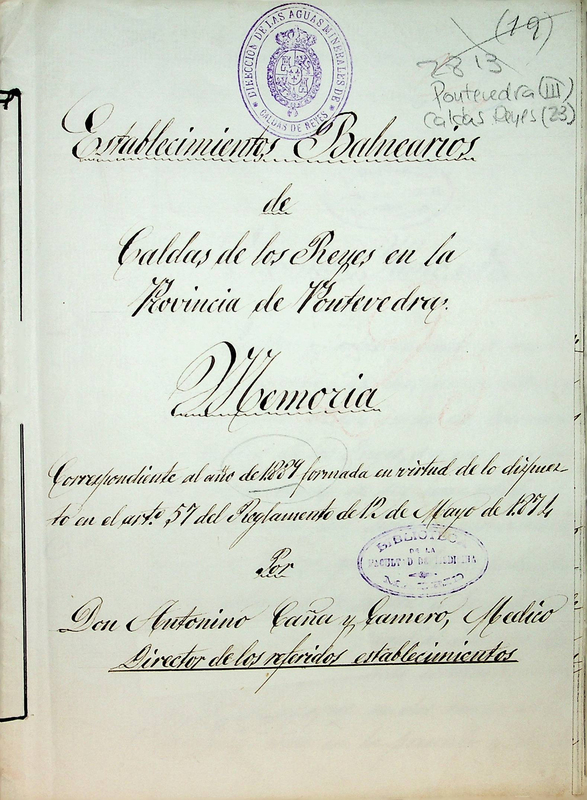 DIRECCION DE LAS AGUAS MINERALES DE
CALDAS DE REYES
(19)
2813
Pontevedra (III)
Caldas Reyes (23)
Establecimientos Balnearios
de
Caldas de los Reyes en la
Provincia de Pontevedra.
Memoria
Correspondiente al año de formada en virtud de lo dispues-
to en el artº 57 del Reglamento de 12 de Mayo de 1874
Por
BIBLIOTECA
DE LA
FACULTAD DE MEDICINA
Don Antonino Caña y Gamero, Medico
Director de los referidos establecimientos